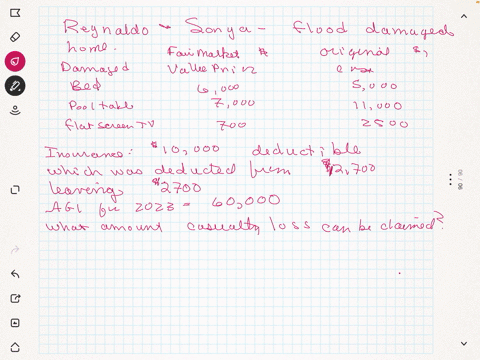 Reynaldo & Sonya - flood damaged
home. Fair Market $ original $,
Damaged Value Prin
Bed 6,000 5,000
Pool table 7,000 11,000
flat screen TV 700 2500
Insurance: $10,000 deductible
which was deducted from $12,700
leaving $2700
AGI for 2023 = 60,000
what amount casualty loss can be claimed?